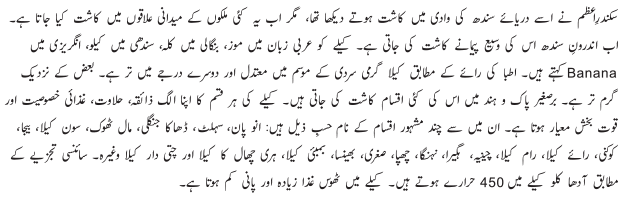 سکندرِاعظم نے اسے دریائے سندھ کی وادی میں کاشت ہوتے دیکھا تھا، مگر اب یہ کئی ملکوں کے میدانی علاقوں میں کاشت کیا جاتا ہے۔
اب اندرونِ سندھ اس کی وسیع پیمانے کاشت کی جاتی ہے۔ کیلے کو عربی زبان میں موز، بنگالی میں کلہ، سندھی میں کیلو، انگریزی میں
Banana کہتے ہیں۔ اطبا کی رائے کے مطابق کیلا گرمی سردی کے موسم میں معتدل اور دوسرے درجے میں تر ہے۔ بعض کے نزدیک
گرم تر ہے۔ برصغیر پاک و ہند میں اس کی کئی اقسام کاشت کی جاتی ہیں۔ کیلے کی ہر قسم کا اپنا الگ ذائقہ، حلاوت، غذائی خصوصیت اور
قوت بخش معیار ہوتا ہے۔ ان میں سے چند مشہور اقسام کے نام حسبِ ذیل ہیں: انو پان، سہلٹ، ڈھاکا جنگلی، مال ٹھوک، سون کیلا، بیجا،
کوکنی، رائے کیلا، رام کیلا، چینیہ، بگیرا، نہنگا، چھپا، صغری، بھینسا، بمبئی کیلا، ہری چھال کا کیلا اور چتی دار کیلا وغیرہ۔ سائنسی تجزیے کے
مطابق آدھا کلو کیلے میں 450 حرارے ہوتے ہیں۔ کیلے میں ٹھوس غذا زیادہ اور پانی کم ہوتا ہے۔